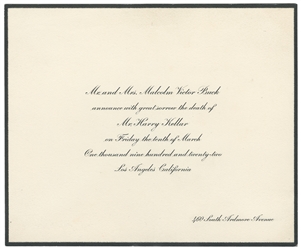 Mr. and Mrs. Malcolm Victor Buck
announce with great sorrow the death of
Mr. Harry Kellar
on Friday the tenth of March
One thousand nine hundred and twenty-two
Los Angeles California
460 South Ardmore Avenue